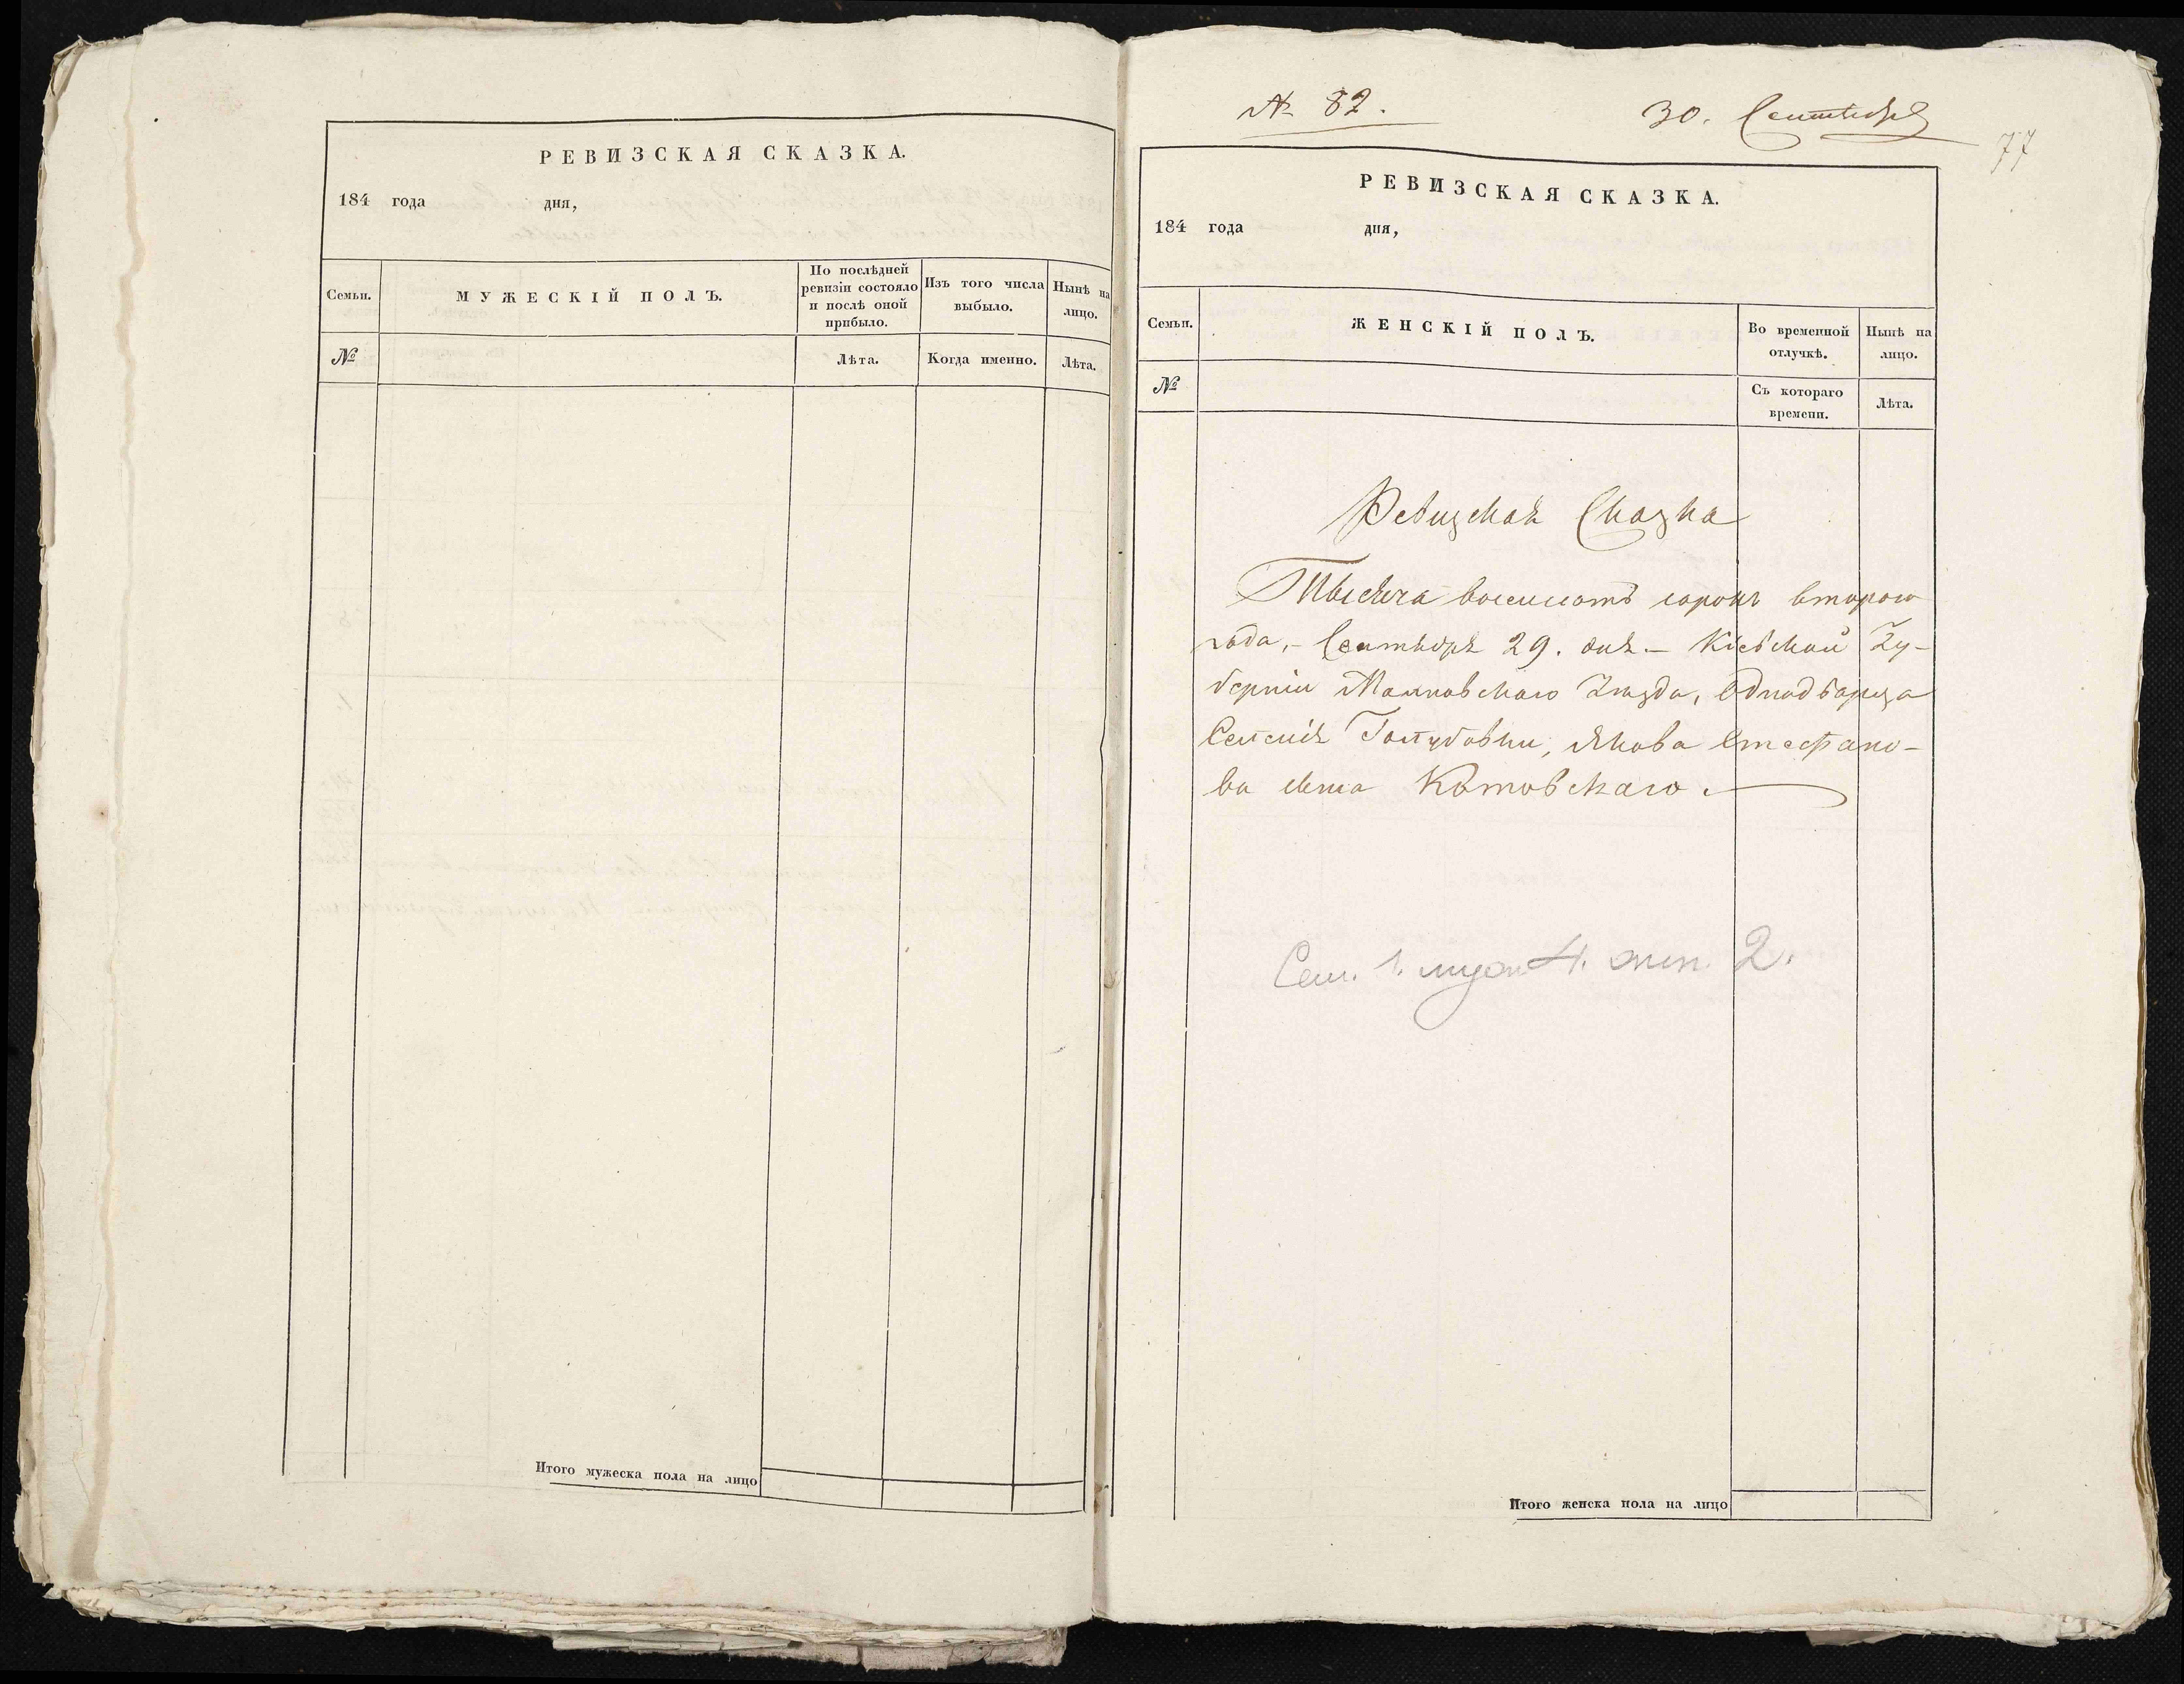 РЕВИЗСКАЯ СКАЗКА.
184 года дня,
Семьи.
МУЖЕСКІЙ ПОЛЪ.
По послѣдней ревизіи состояло и послѣ оной прибыло.
Изъ того числа выбыло.
Нынѣ на лицо.
№
Лѣта.
Когда именно.
Лѣта.
Итого мужеска пола на лицо
№ 82.
30. Сентября
77
РЕВИЗСКАЯ СКАЗКА.
184 года дня,
Семьи.
ЖЕНСКІЙ ПОЛЪ.
Во временной отлучкѣ.
Нынѣ на лицо.
№
Съ котораго времени.
Лѣта.
Ревизская Сказка
Тысяча восемсотъ сорокъ второго
года,- Сентября 29. дня.- Кіевской Гу-
берніи Махновскаго уезда, Однодворца
Селенія Голубовки, Якова Стефано-
ва сына Котовскаго.
Сем. 1. муж. 4. жен. 2.
Итого женска пола на лицо